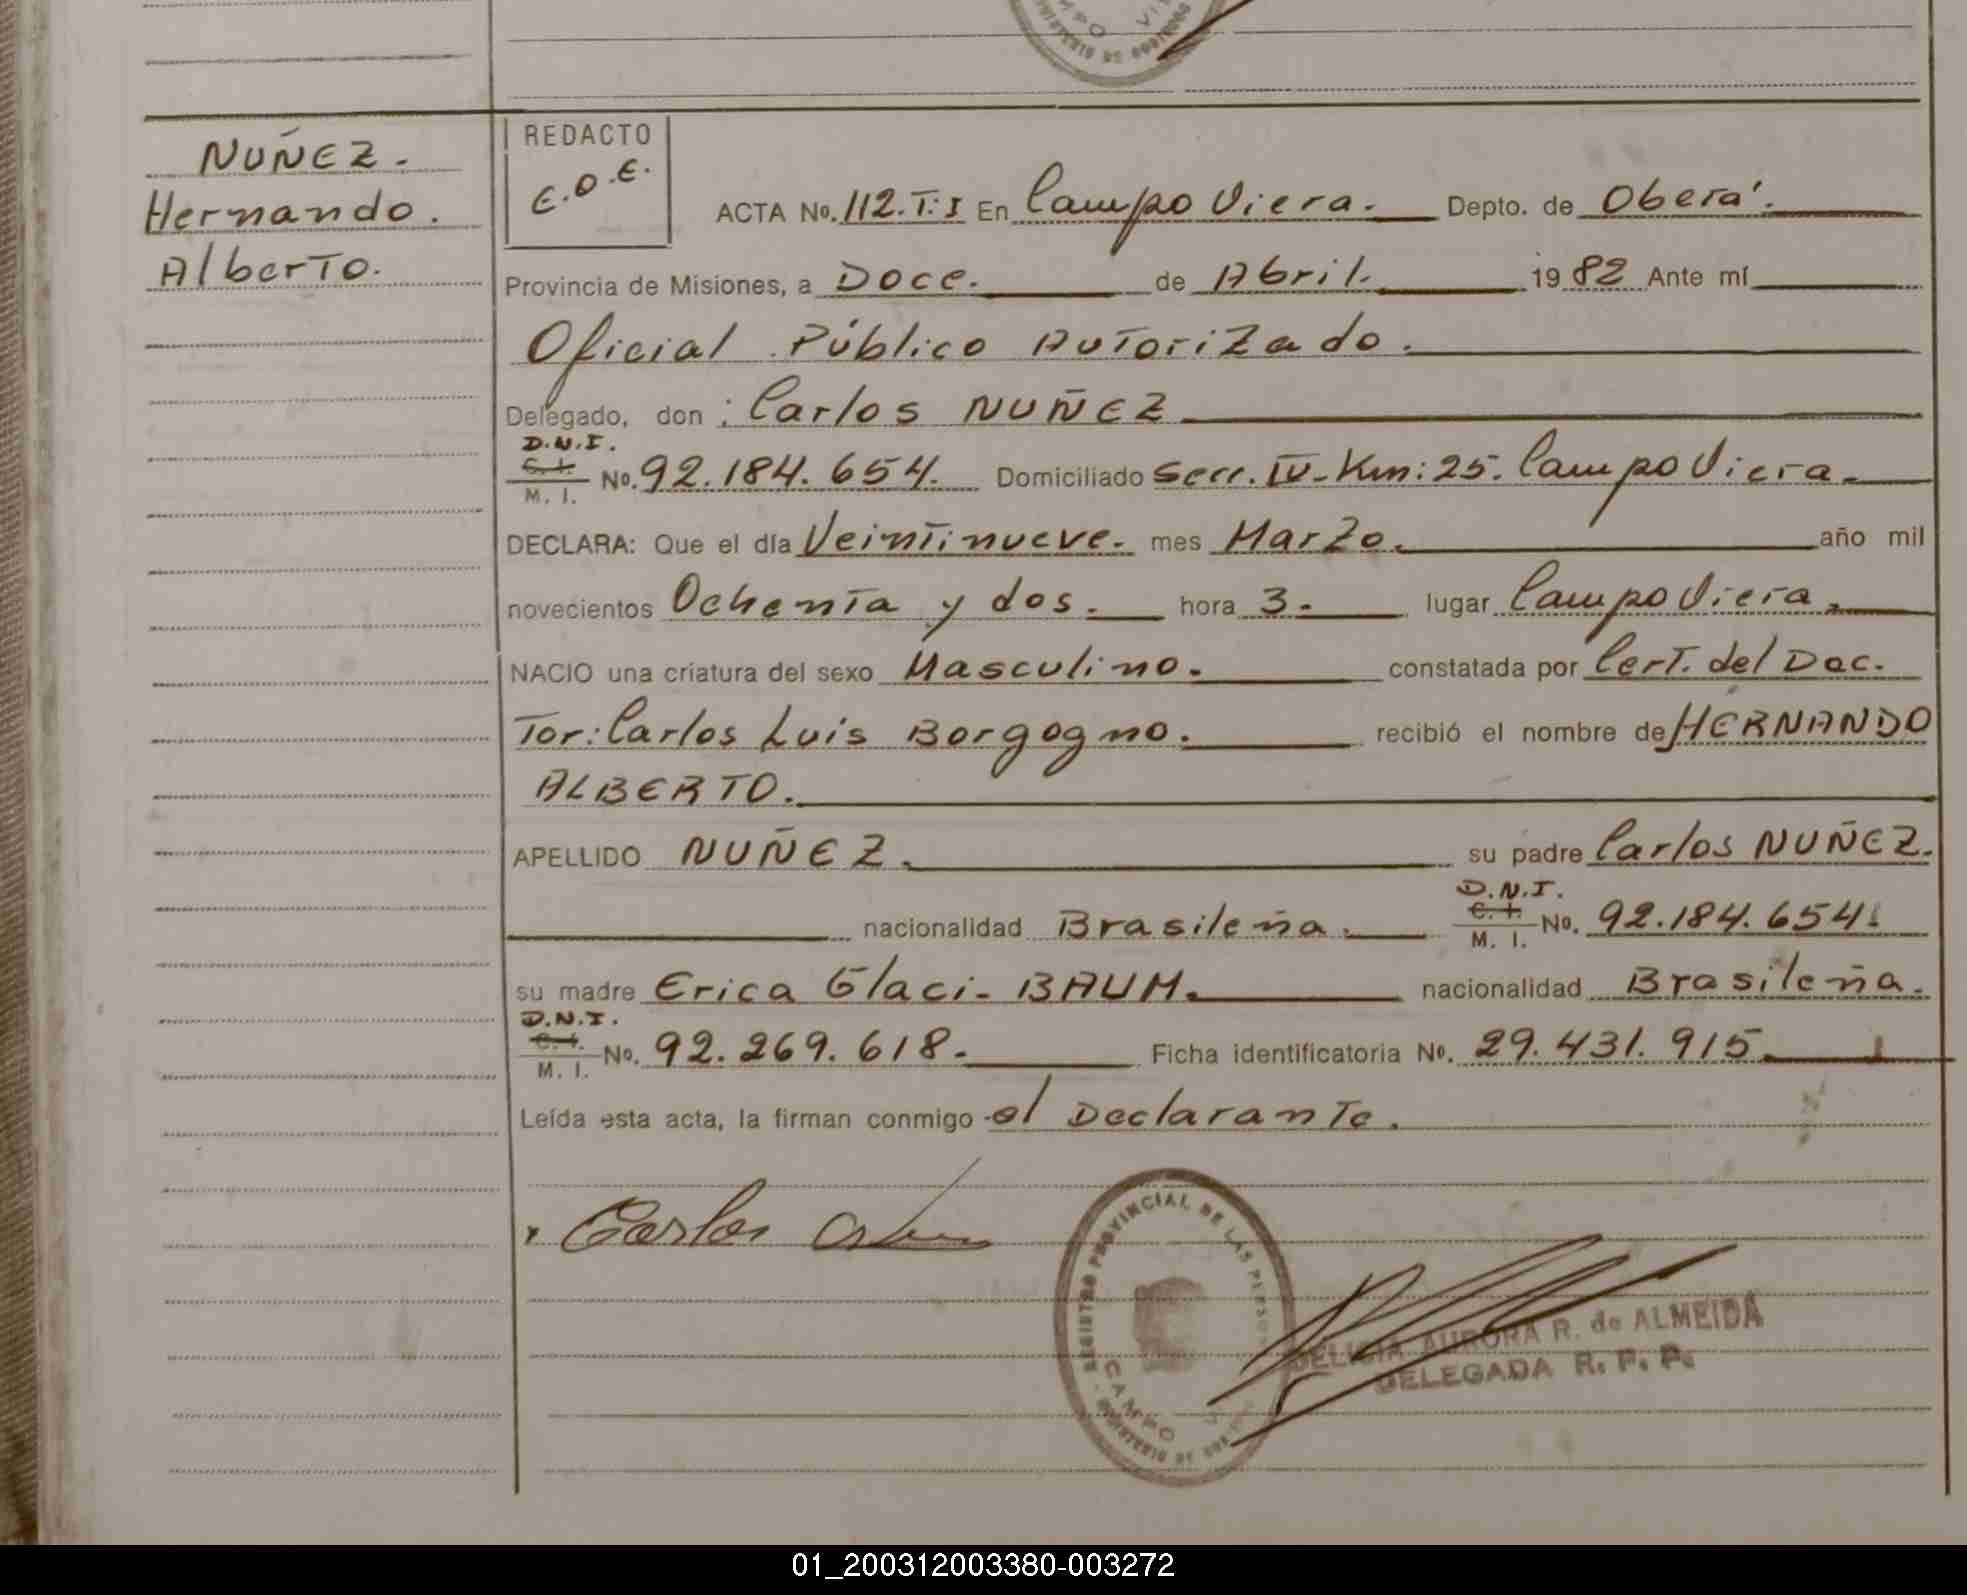 NUÑEZ.
Hernando.
Alberto.
REDACTO
E.O.E.
ACTA No. 112.T:I En Campo Viera. Depto. de Oberá.
Provincia de Misiones, a Doce. de Abril. 1982 Ante mí
Oficial Público Autorizado.
Delegado, don : Carlos NUÑEZ
D.N.I.
C. I.
M. I.
No. 92.184.654. Domiciliado Secc. IV-Km: 25. Campo Viera.
DECLARA: Que el día Veintinueve. mes Marzo. año mil
novecientos Ochenta y dos. hora 3. lugar Campo Viera.
NACIO una criatura del sexo Masculino. constatada por Cert. del Doc.
Tor: Carlos Luis Borgogno. recibió el nombre de HERNANDO
ALBERTO.
APELLIDO NUÑEZ. su padre Carlos NUÑEZ.
nacionalidad Brasileña. D.N.I. C. I. M. I. No. 92.184.654.
su madre Erica Glaci- BAUM. nacionalidad Brasileña.
D.N.I.
C. I.
M. I.
No. 92.269.618. Ficha identificatoria No. 29.431.915.
Leída esta acta, la firman conmigo el Declarante.
Carlos
REGISTRO PROVINCIAL DE LAS PERSON
CAMPO
DELICIA AURORA R. de ALMEIDA
DELEGADA R. P. P.
01_200312003380-003272